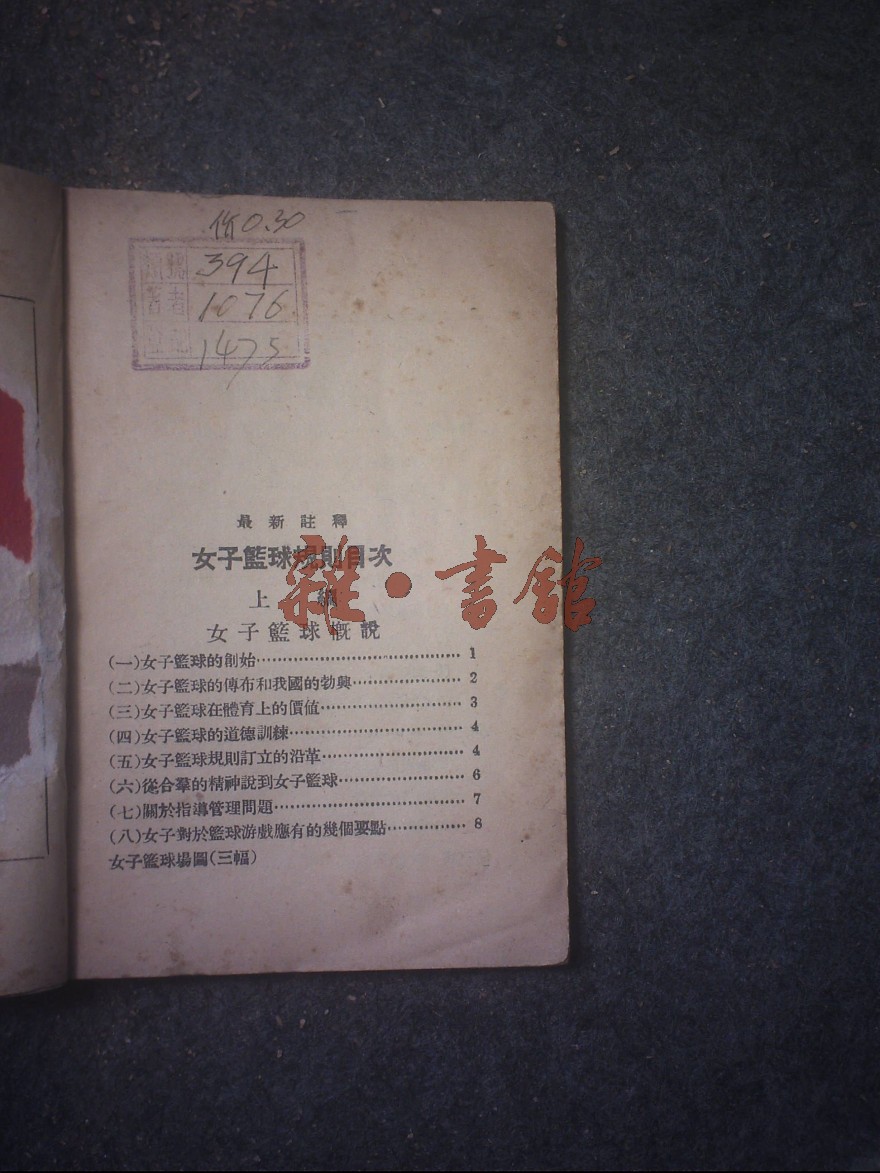 价0.30
394
1076
1475
最新註釋
女子籃球規則目次
上
女子籃球概說
雜·書館
(一)女子籃球的創始……………………………… 1
(二)女子籃球的傳布和我國的勃興……………… 2
(三)女子籃球在體育上的價値…………………… 3
(四)女子籃球的道德訓練………………………… 4
(五)女子籃球規則訂立的沿革…………………… 4
(六)從合羣的精神說到女子籃球………………… 6
(七)關於指導管理問題…………………………… 7
(八)女子對於籃球游戲應有的幾個要點………… 8
女子籃球場圖(三幅)